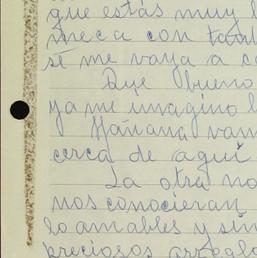 que estás muy l
meca con tant
sé me vaya a c
Que bueno
ya me imagino l
Mañana vam
cerca de aquí
La otra no
nos conocieran
lo amables y sin
preciosos arreglo